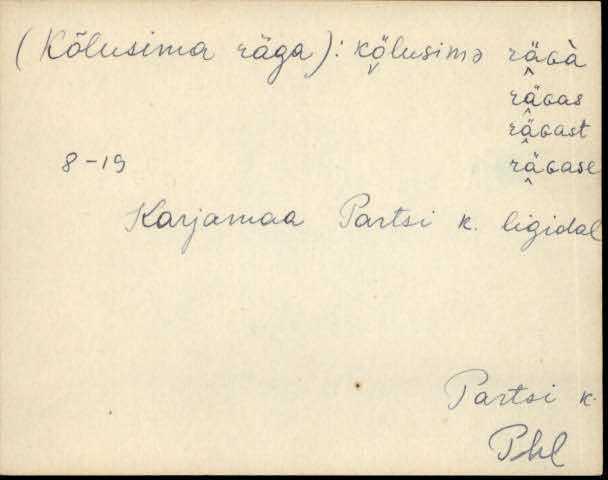 (Kõlusima räga): kö̬lusimə rä̭ɢà
rä̭ɢas
rä̭ɢast
rä̭ɢase
8-19
Karjamaa Partsi k. ligidal
Partsi k.
Phl